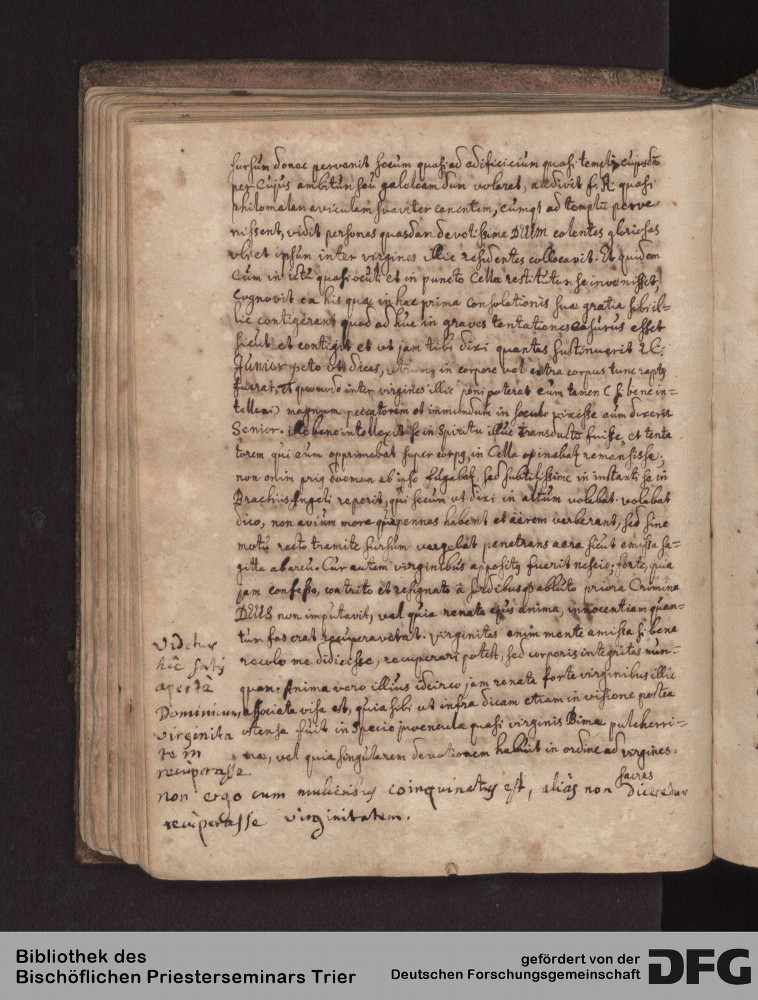 sursum donec pervenit secum quasi ad edificicium quasi templi cujusdā
per cujus ambitum seu galileam dum volaret, audivit f. R quasi
philomelam aviculam suaviter canentem, cumq; ad templū perve
nissent, vidit personas quasdam devotissime DEUM colentes gloriosas
ubi et ipsum inter virgines illic residentes collocavit. Et quidem
Cum in ictu quasi oculi et in puncto Cellæ restitutum se invenisset,
Cognovit ex his quæ in hac prima consolationis suæ gratia sibi il=
lic contigerant quod ad huc in graves tentationes casurus esset
sicut et contigit et ut jam tibi dixi quantas sustinuerit
Junior peto ut dicas, utrum in corpore vel extra corpus tunc raptꝯ
fuerat, et quomodo inter virgines illic poni poterat cum tamen (si bene in=
tellexi) magnum peccatorem et immundum in sæculo vixisse eum dixeris
Senior. ille bene intellexit se in Spiritu illic transductū fuisse, et tenta
torem qui eum opprimebat super corpꝯ, in Cella
remansisse;
non enim priꝯ dæmon ab ipso fugabat, sed subtilissime in instanti se in
Brachiis Angeli reperit, qui secum ut dixi in altum volabat. volabat
dico, non avium more quæ pennas habent et aërem verberant, sed sine
motu recto tramite sursum vergebat penetrans aera sicut emissa sa=
gitta ab arcu. Cur autem virginibus appositꝯ fuerit nescio; forte, quia
jam confesso, contrito et resignato â sordibusq; abluto priora Crimina
DEUS non imputavit, vel quia renata ejus anima, innocentiam quan=
tum fas erat recuperaverat. virginitas enim mente amissa si bene
recolo me didicisse, recuperari potest, sed corporis integritas nun=
quam. Anima vero illius idcirco jam renata forte virginibus illic
associata visa est, quia sibi ut infra dicam etiam in visione postea
ostensa fuit in specie juvencula quasi virginis Bimæ pulcherri=
mæ, vel quia singularem devotionem habuit in ordine ad virgines
sacras
Videtur
hic satis
aperte
Dominicum
virginita
tem
recuperasse
non ergo cum mulieribꝯ coinquinatꝯ est, aliâs non diceretur
recuperasse virginitatem.
Bibliothek des
Bischöflichen Priesterseminars Trier
gefördert von der
Deutschen Forschungsgemeinschaft
DFG